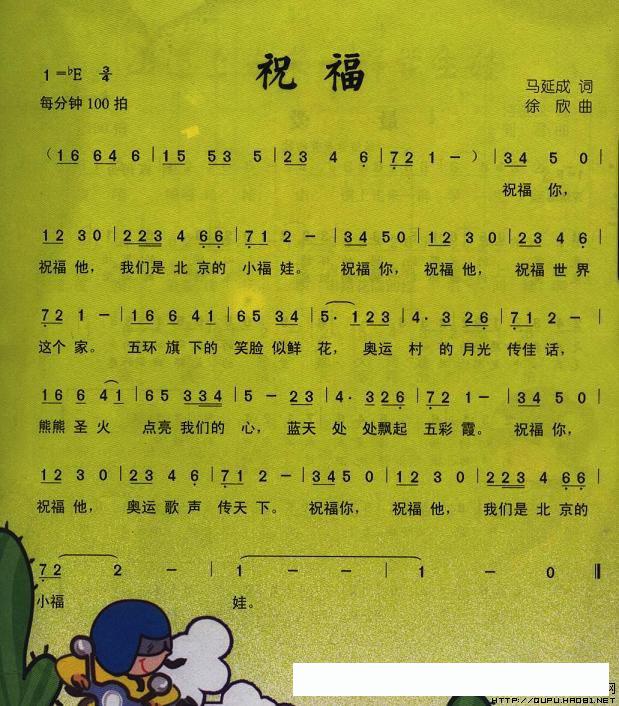 祝福
1=♭E 3/4
马延成 词
每分钟100拍
徐欣 曲
( 16 64 6 | 15 53 5 | 23 4 6 | 72 1 - ) | 34 5 0 |
祝福 你,
12 3 0 | 223 4 66 | 71 2 - | 34 5 0 | 12 3 0 | 23 4 6 |
祝福 他, 我们是 北 京的 小福 娃。 祝福 你, 祝福 他, 祝福 世 界
72 1 - | 16 6 41 | 65 34 | 5· 1 23 | 4· 3 26 | 71 2 - |
这个 家。 五环 旗 下的 笑脸 似鲜 花, 奥运 村 的 月光 传佳 话,
16 6 41 | 65 334 | 5 - 23 | 4· 326 | 72 1 - | 34 5 0 |
熊熊 圣 火 点亮 我们的 心, 蓝天 处 处飘起 五彩 霞。 祝福 你,
12 3 0 | 23 4 6 | 71 2 - | 345 0 | 12 3 0 | 223 4 66 |
祝福 他, 奥运 歌 声 传天 下。 祝福你, 祝福 他, 我们是 北 京的
72 2 - | 1 - - | 1 - 0 ‖
小福 娃。
网
HTTP://QUPU.HAO81.NET